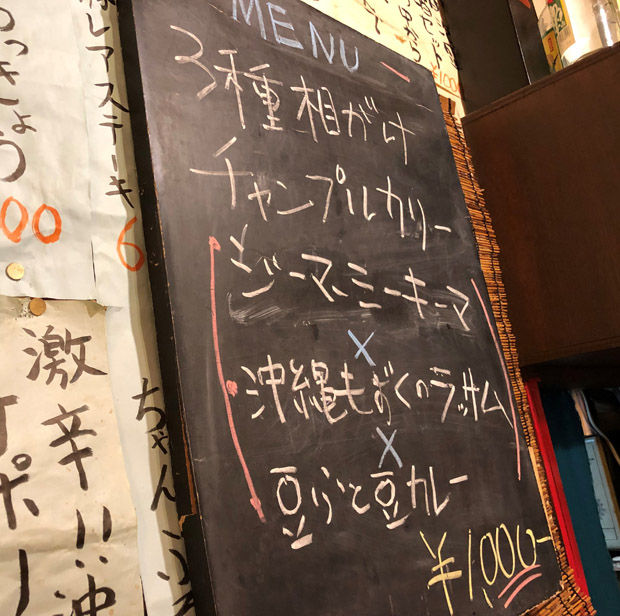 MENU
3種相がけ
チャンプルカリー
ジーマーミーキーマ
×
沖縄もずくのラッサム
×
豆らと豆カレー
¥1,000-
レアステーキ
6
しょう
00
激辛!!沖
ちゃん